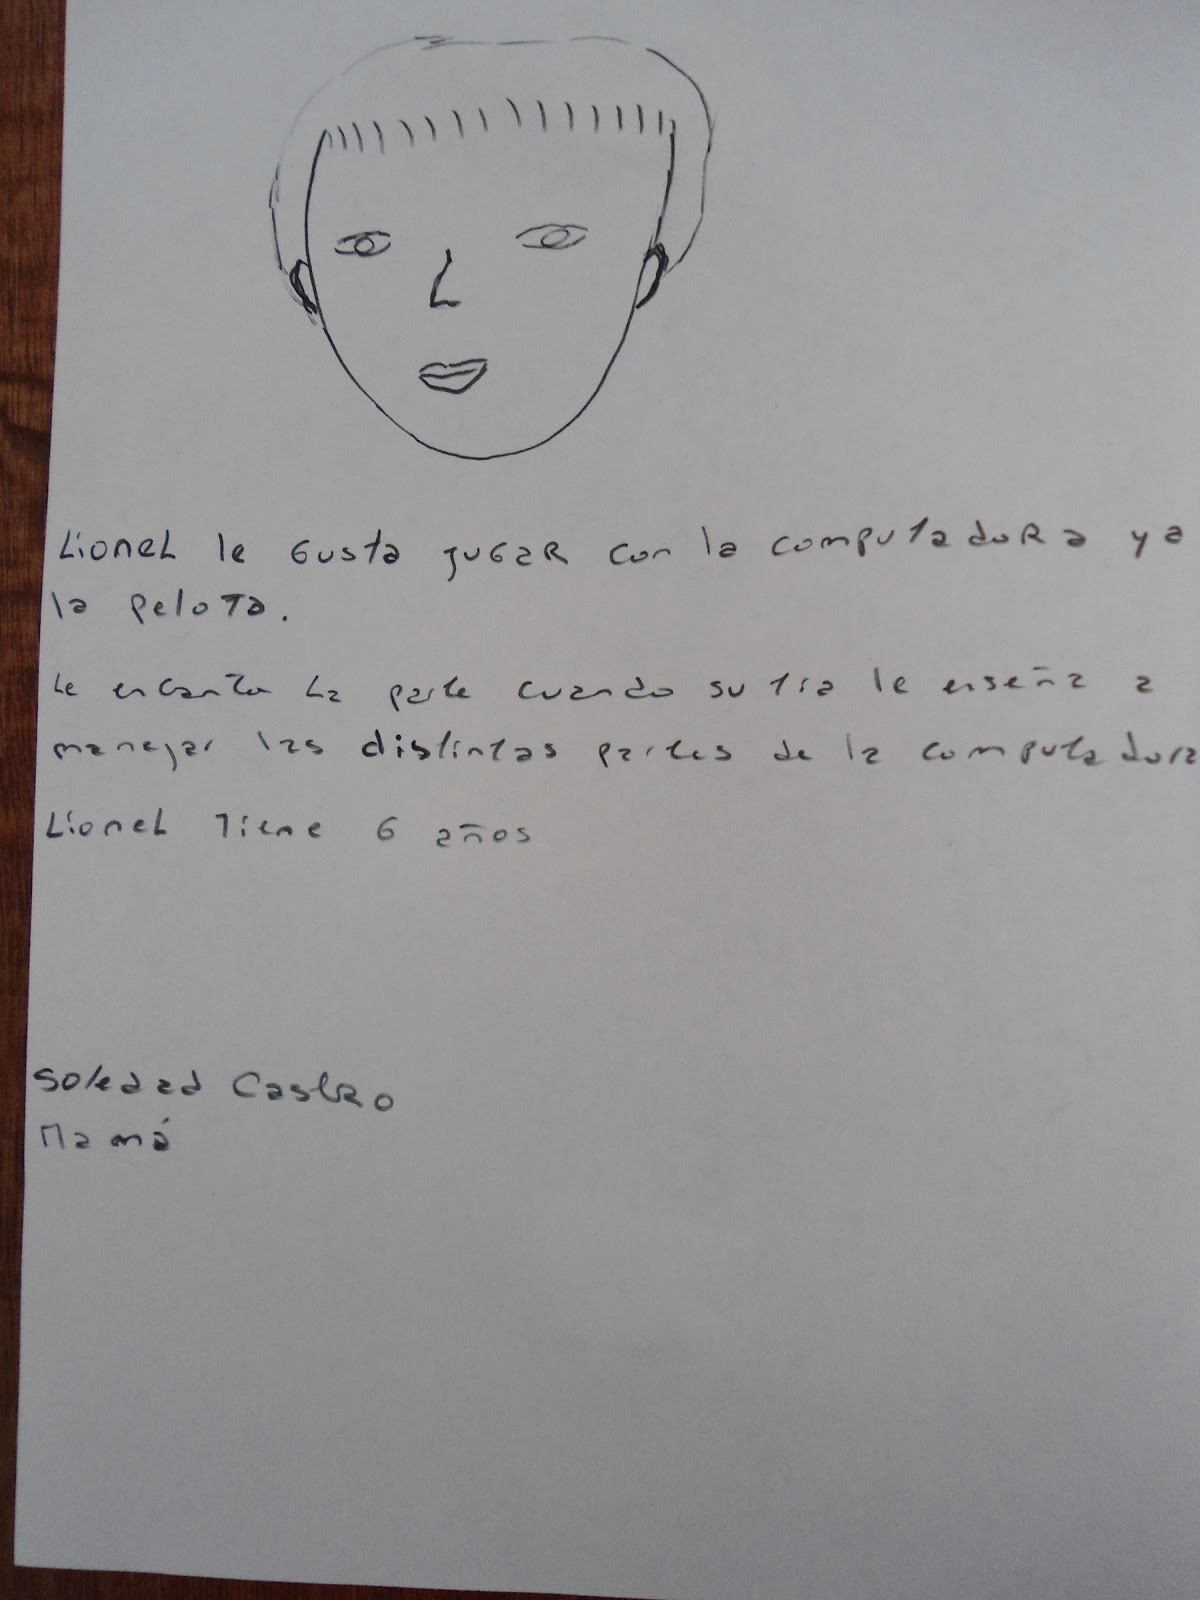 Lionel le Gusta jugar con la computadora y a
la pelota.
Le encanta La parte cuando su tia le enseña a
manejar las distintas partes de la computadora
Lionel Tiene 6 años
Soledad Castro
Mamá